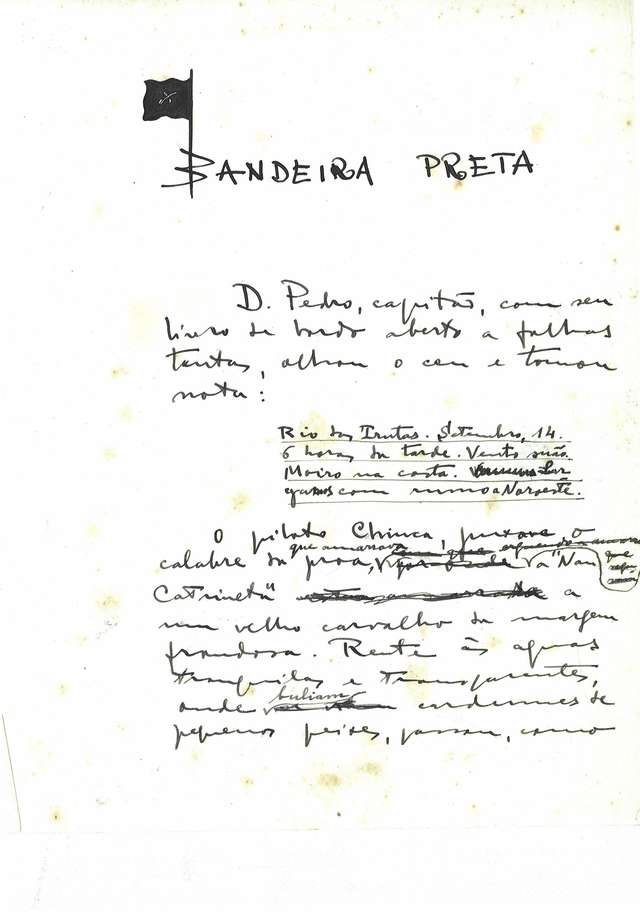 BANDEIRA PRETA
D. Pedro, capitão, com seu
livro de bordo aberto a folhas
tantas, olhou o ceu e tomou
nota:
Rio das Trutas. Setembro, 14.
6 horas da tarde. Vento suão.
Moiro na costa. Lar
gamos com rumo a Noroeste.
O piloto Chinca, puxava o
que amarrava
calabre da proa, a "Nau
Catrineta" a
um velho carvalho da margem
frondosa. Rente às aguas
tranquilas e transparentes,
buliam
onde cardumes de
pequenos peixes, passou, como